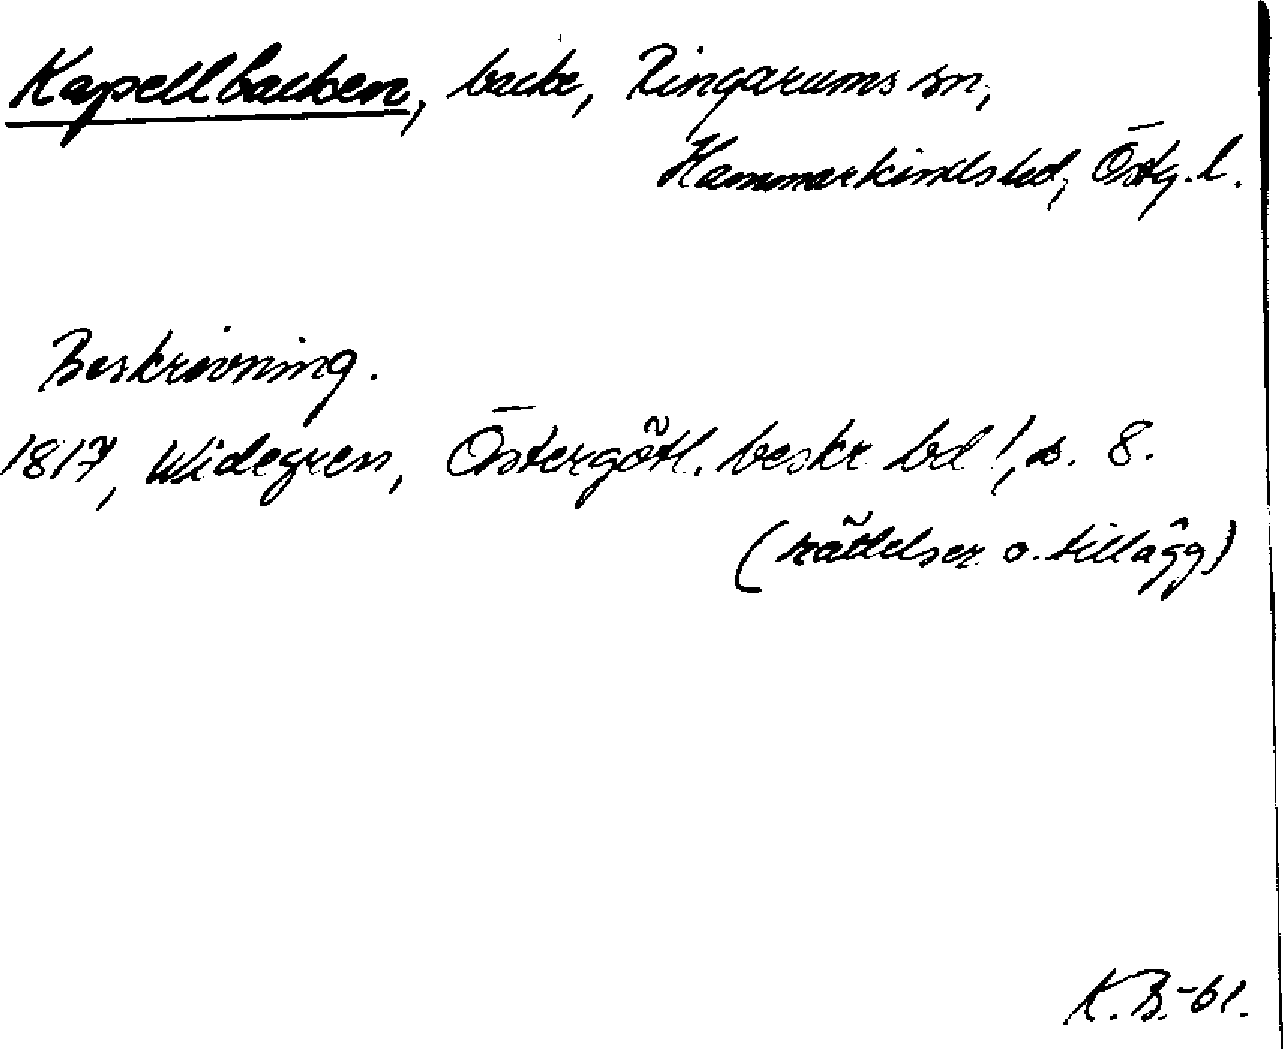 Kapellbacken, backe, Ringarums sn,
Hammarkinds hd, Östg. l.
Beskrivning.
1817, Widegren, Östergötl. beskr. bd 1, s. 8.
(rättelser o. tillägg)
K.B.-61.